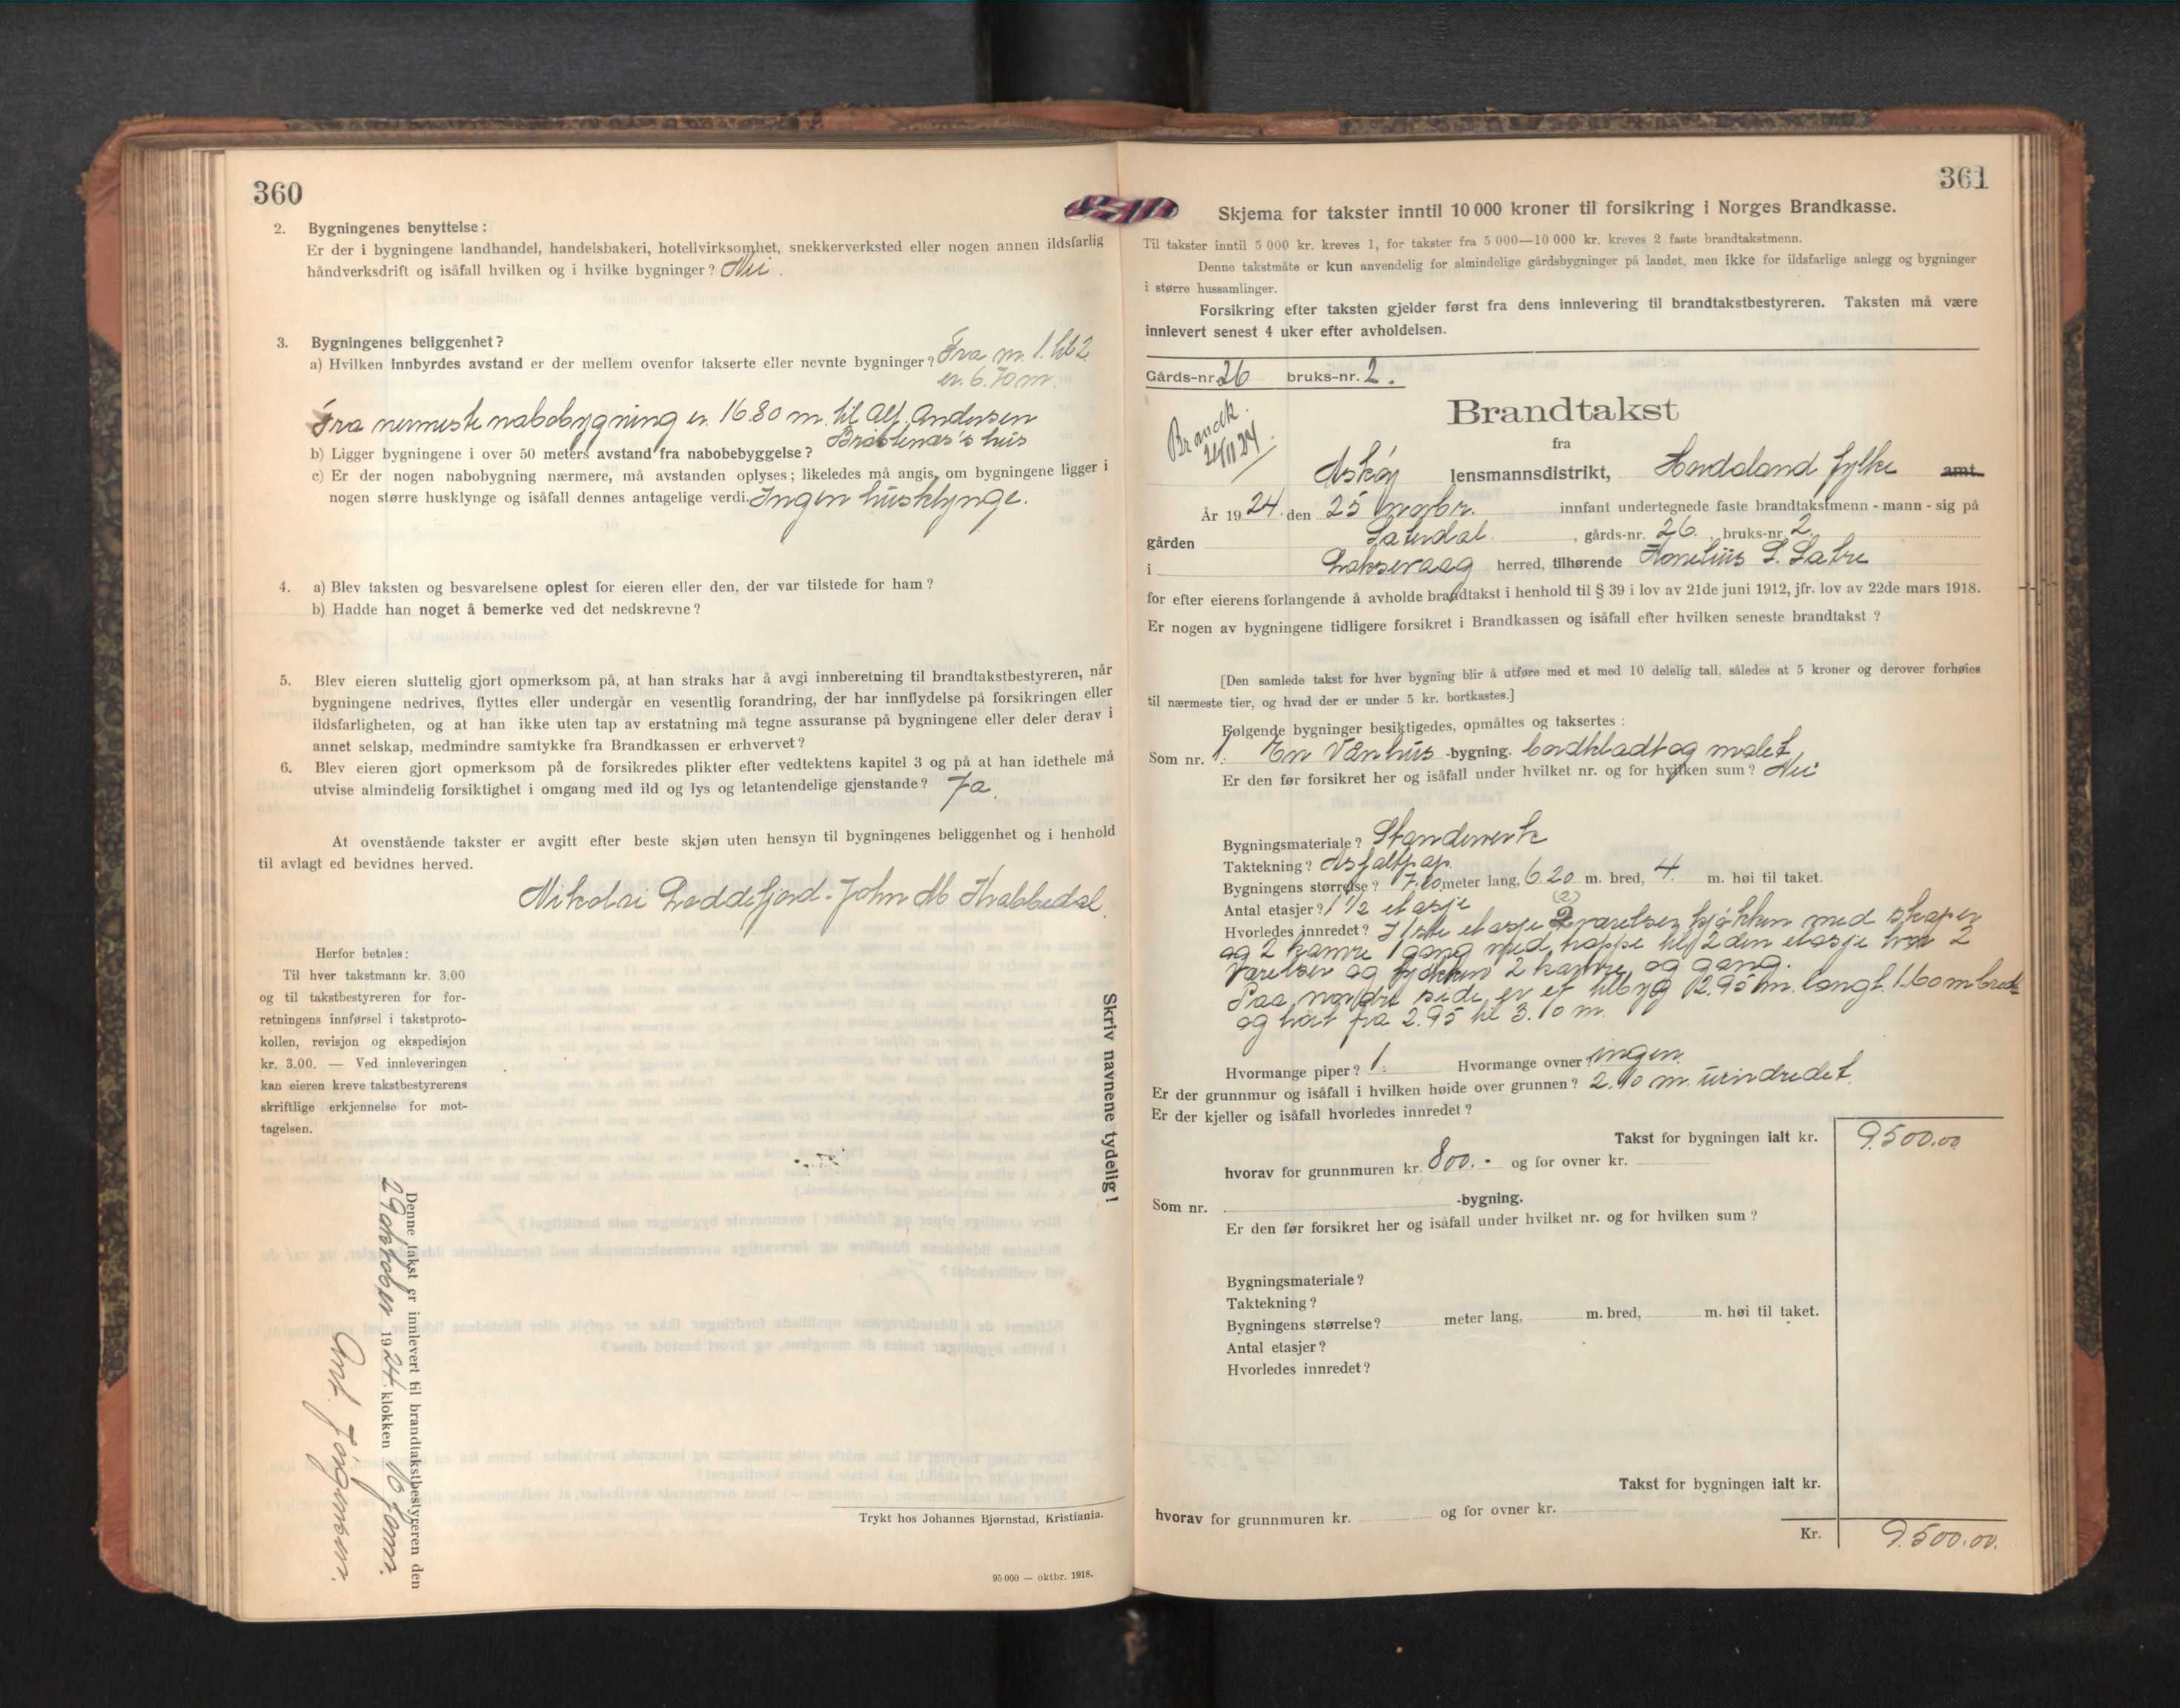 360
2. Bygningenes benyttelse:
Er der i bygningene landhandel, handelsbakeri, hotellvirksomhet, snekkerverksted eller nogen annen ildsfarlig
håndverksdrift og isåfall hvilken og i hvilke bygninger? Nei.
3. Bygningenes beliggenhet?
a) Hvilken innbyrdes avstand er der mellem ovenfor takserte eller nevnte bygninger? Fra nr. 1. til 2
er. 6.70 m.
Fra nermeste nabobygning er. 16.80 m. til Alf. Andersen
hus
b) Ligger bygningene i over 50 meters avstand fra nabobebyggelse?
c) Er der nogen nabobygning nærmere, må avstanden oplyses; likeledes må angis, om bygningene ligger i
nogen større husklynge og isåfall dennes antagelige verdi. Ingen husklynge.
4. a) Blev taksten og besvarelsene oplest for eieren eller den, der var tilstede for ham?
b) Hadde han noget å bemerke ved det nedskrevne?
5. Blev eieren sluttelig gjort opmerksom på, at han straks har å avgi innberetning til brandtakstbestyreren, når
bygningene nedrives, flyttes eller undergår en vesentlig forandring, der har innflydelse på forsikringen eller
ildsfarligheten, og at han ikke uten tap av erstatning må tegne assuranse på bygningene eller deler derav i
annet selskap, medmindre samtykke fra Brandkassen er erhvervet?
6. Blev eieren gjort opmerksom på de forsikredes plikter efter vedtektens kapitel 3 og på at han idethele må
utvise almindelig forsiktighet i omgang med ild og lys og letantendelige gjenstande? Ja.
At ovenstående takster er avgitt efter beste skjøn uten hensyn til bygningenes beliggenhet og i henhold
til avlagt ed bevidnes herved.
Nikolai Loddefjord. John M Krabbedal.
Herfor betales:
Til hver takstmann kr. 3.00
og til takstbestyreren for for-
retningens innførsel i takstproto-
kollen, revisjon og ekspedisjon
kr. 3.00. — Ved innleveringen
kan eieren kreve takstbestyrerens
skriftlige erkjennelse for mot-
tagelsen.
Skriv navnene tydelig!
Denne takst er innlevert til brandtakstbestyreren den
29 oktober 1924. klokken 10 form.
Ant. Jørgensen.
Trykt hos Johannes Bjørnstad, Kristiania.
95 000 — oktbr. 1918.
361
Skjema for takster inntil 10 000 kroner til forsikring i Norges Brandkasse.
Til takster inntil 5 000 kr. kreves 1, for takster fra 5 000—10 000 kr. kreves 2 faste brandtakstmenn.
Denne takstmåte er kun anvendelig for almindelige gårdsbygninger på landet, men ikke for ildsfarlige anlegg og bygninger
i større hussamlinger.
Forsikring efter taksten gjelder først fra dens innlevering til brandtakstbestyreren. Taksten må være
innlevert senest 4 uker efter avholdelsen.
Gårds-nr. 26 bruks-nr. 2.
Brandtakst
fra
Brandk.
Askøy lensmannsdistrikt, Hordaland fylke amt.
År 1924. den 25 novbr. innfant undertegnede faste brandtakstmenn - mann - sig på
gården , gårds-nr. 26. bruks-nr. 2.
i Laksevaag herred, tilhørende Kornelius S. Sætre
for efter eierens forlangende å avholde brandtakst i henhold til § 39 i lov av 21de juni 1912, jfr. lov av 22de mars 1918.
Er nogen av bygningene tidligere forsikret i Brandkassen og isåfall efter hvilken seneste brandtakst?
[Den samlede takst for hver bygning blir å utføre med et med 10 delelig tall, således at 5 kroner og derover forhøies
til nærmeste tier, og hvad der er under 5 kr. bortkastes.]
Følgende bygninger besiktigedes, opmåltes og taksertes:
Som nr. 1. En Vånhus -bygning. bordkledt og malet.
Er den før forsikret her og isåfall under hvilket nr. og for hvilken sum? Nei
Bygningsmateriale? Standerverk
Taktekning? Asfaltpap.
Bygningens størrelse? 7.20 meter lang, 6.20 m. bred, 4. m. høi til taket.
Antal etasjer? 1 1/2 etasje (2)
Hvorledes innredet? I 1ste etasje 2 værelser kjøkken med skaper
og 2 kamre 1 gang med trappe til 2den etasje hvor 2
Værelser og kjøkken 2 kamre og gang.
Paa nordre side er et tilbyg 2.95 m. langt. 1.60 m bredt
og høit fra 2.95 til 3.10 m.
Hvormange piper? 1. Hvormange ovner? ingen.
Er der grunnmur og isåfall i hvilken høide over grunnen? 2.10 m. uindredet.
Er der kjeller og isåfall hvorledes innredet?
Takst for bygningen ialt kr. 9.500.00
hvorav for grunnmuren kr. 800.- og for ovner kr.
Som nr. -bygning.
Er den før forsikret her og isåfall under hvilket nr. og for hvilken sum?
Bygningsmateriale?
Taktekning?
Bygningens størrelse? meter lang, m. bred, m. høi til taket.
Antal etasjer?
Hvorledes innredet?
Takst for bygningen ialt kr.
hvorav for grunnmuren kr. og for ovner kr.
Kr. 9.500.00.